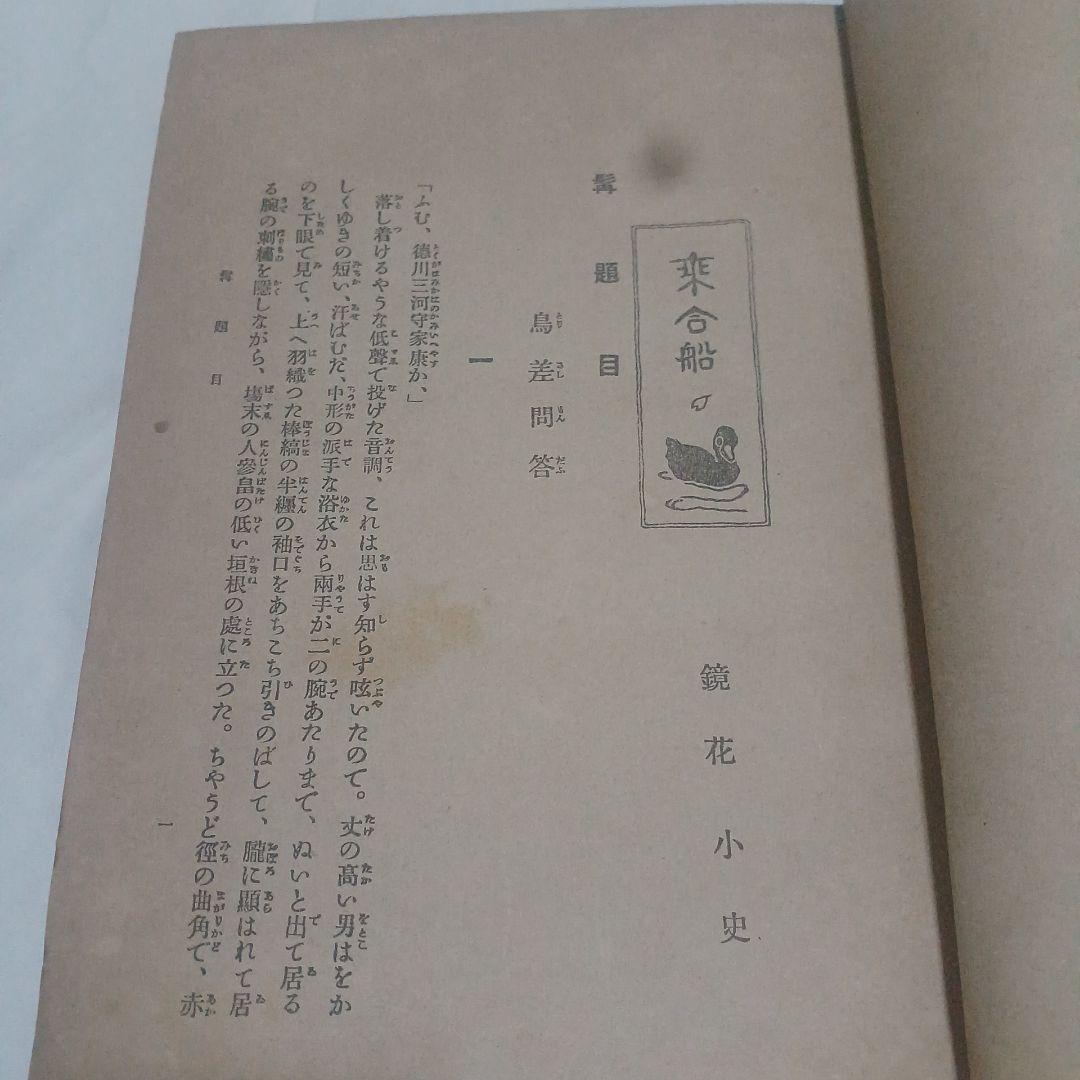 乘合船
鏡花小史
髯題目
鳥差問答
一
「ふむ、德川三河守家康か、」
落し着けるやうな低聲で投げた音調、これは思はす知らず呟いたので。丈の高い男はをか
しくゆきの短い、汗ばむだ、中形の派手な浴衣から兩手が二の腕あたりまで、ぬいと出て居る
のを下眼で見て、上へ羽織つた棒縞の半纏の袖口をあちこち引きのばして、朧に顯はれて居
る腕の刺繡を隱しながら、塲末の人參畠の低い垣根の處に立つた。ちやうど徑の曲角で、赤
髯題目
一